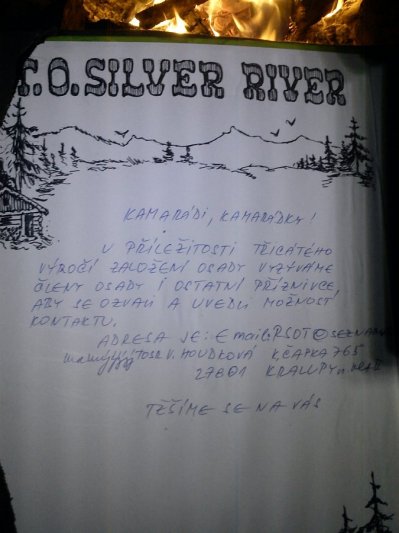 T.O. SILVER RIVER
KAMARÁDI, KAMARÁDKY!
U PŘÍLEŽITOSTI TŘICÁTÉHO
VÝROČÍ ZALOŽENÍ OSADY VYZÝVÁME
ČLENY OSADY I OSTATNÍ PŘÍZNIVCE
ABY SE OZVALI A UVEDLI MOŽNOST
KONTAKTU.
ADRESA JE: Email: RSOT@SEZNAM
V. HOUDKOVÁ K.ČAPKA 765
27801 KRALUPY
TĚŠÍME SE NA VÁS